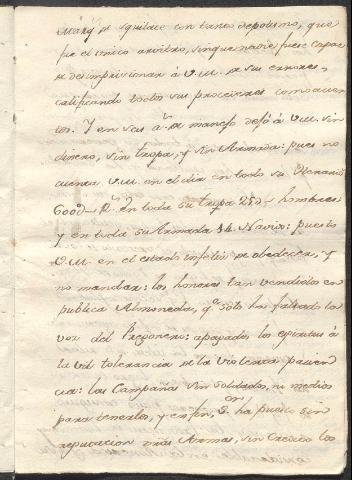 Marqs. de Squilace con tanto depotismo, que
fue el unico arvitro, sin que nadie fuese capaz
de desimprisionar á V.M. de sus errores,
calificando todos sus procederes como
tos. Y en seis as. de manejo dejó á V.M. sin
dinero, sin tropa, y sin Armada: pues no
cuenta V.M. en el dia en todo su Herario
600 Ds. en toda su tropa 250 hombres,
y en toda su Armada 14 Navios: puesto
V.M. en el estado infeliz de obedecer, y
no mandar: los honores tan vendidos en
publica Almoneda, qe. solo ha faltado la
voz del Pregonero: apagados los espiritus á
la vil tolerancia de la violenta pacien
cia: las Campañas sin soldados, ni medios
para tenerlos, y en fin, ha puesto sin
reputacion mas Armas, sin credito los